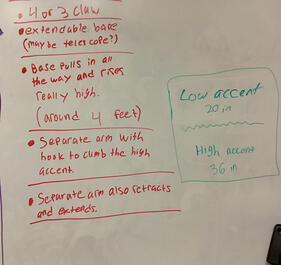 • 4 or 3 claw
• extendable base
(may be telescope?)
• Base pulls in all
the way and rises
really high.
(around 4 feet)
• Separate arm with
hook to climb the high
accent.
• Separate arm also retracts
and extends.
Low accent
20 in
High accent
36 in